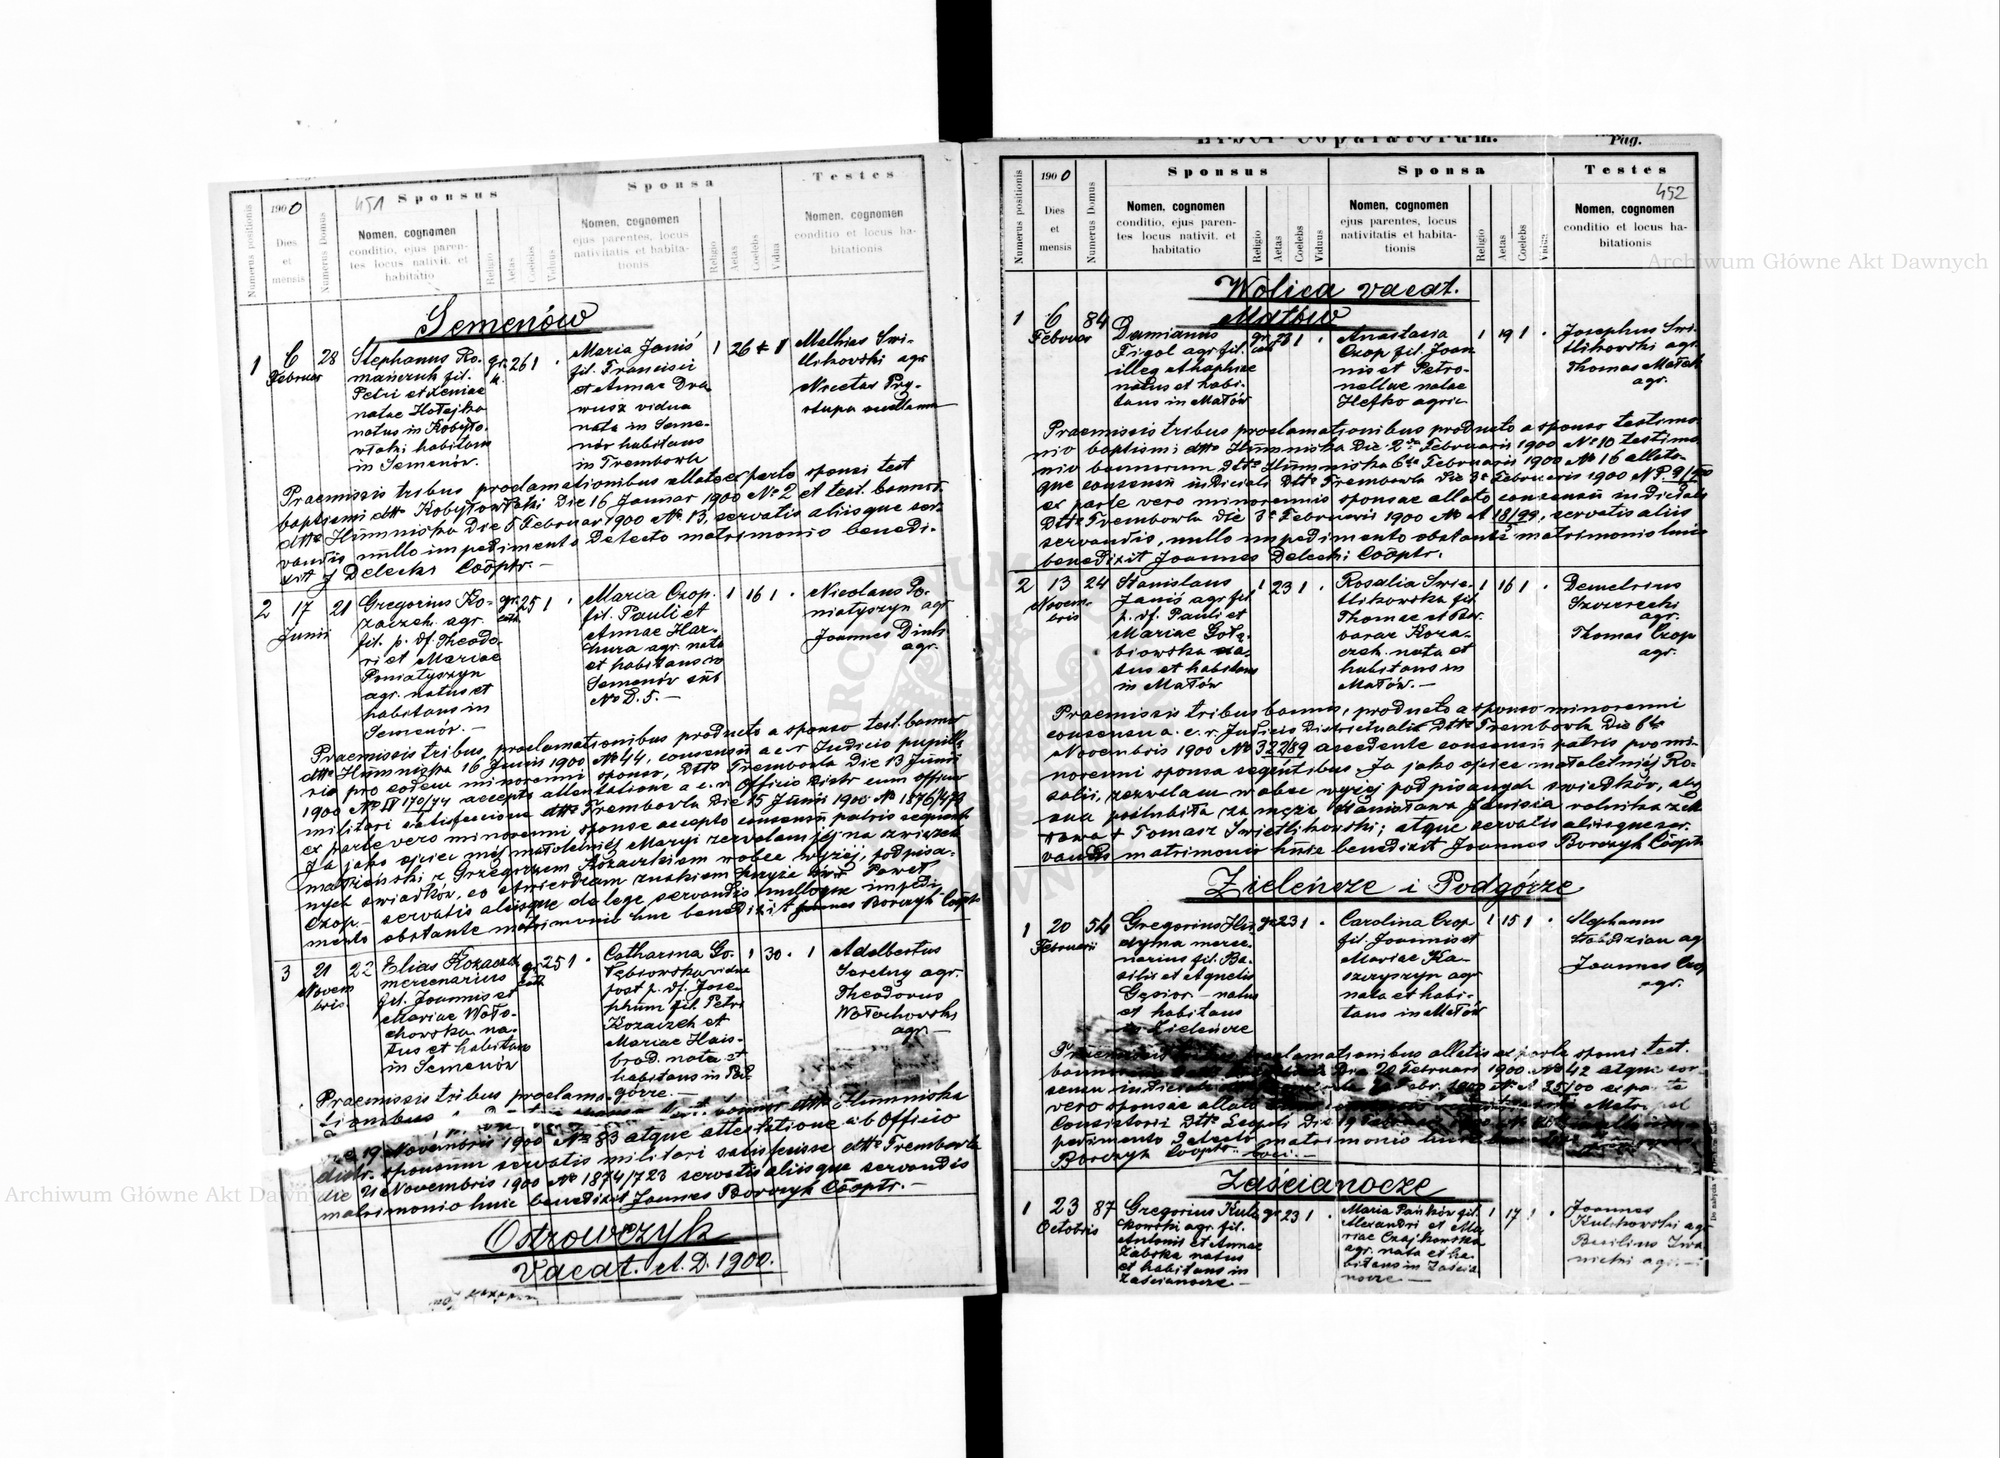 451
1900
Numerus positionis
Dies
et
mensis
Numerus Domus
Sponsus
Nomen, cognomen
conditio, ejus paren-
tes locus nativit. et
habitatio
Religio
Aetas
Coelebs
Viduus
Sponsa
Nomen, cognomen
ejus parentes, locus
nativitatis et habita-
tionis
Religio
Aetas
Coelebs
Vidua
Testes
Nomen, cognomen
conditio et locus ha-
bitationis
Semenów
1 6 28
Februar
Stephanus Ro-
mańczuk fil.
Petri et Xeniae
natae Hołejko
natus in Kobyło-
włoki habitans
in Semenów.
gr. 26 1 .
k.
Maria Janiś
fil. Francisci
et Annae Dra
wusz vidua
nata in Seme-
nów habitans
in Trembowla
1 26 + 1
Mathias Swi-
tlikovski agr
Nicetas Pry-
stupa
Praemissis tribus proclamationibus allato ex parte sponsi test
baptismi dtto Kobyłowłoki Die 16 Januar 1900 No 2 et test. bannor.
dtto Humniska Die 6 Februar 1900 No. 13, servatis aliisque ser-
vandis nullo impedimento Detecto matrimonio benedi-
xit J Delecki Coöptr. —
2 17 21
Junii
Gregorius Ko-
zaczek agr.
fil. p. df. Theodo-
ri et Mariae
Poniatyszyn
agr. natus et
habitans in
Semenów. —
gr. 25 1 .
cath.
Maria Czop.
fil. Pauli et
Annae Har-
hura agr. nata
et habitans in
Semenów sub
No D. 5. —
1 16 1 .
Nicolaus Po-
niatyszyn agr
Joannes Dink
agr.
Praemissis tribus proclamationibus producto a sponso test. bannor
dtto Humniska 16 Junii 1900 No 44, consensu a c. r Judicio pupilla
rio pro eodem minorenni sponso, Dtto Trembowla Die 13 Junii
1900 No IV 170/74 accepta attentatione a c. r Officio Distr cum officio
militari satisfecisse dtto Trembowla Die 15 Junii 1900 No 1876/473
ex parte vero minorenni sponse accepto consensu patris sequent
Ja jako ojciec mej małoletniej Maryi zezwalam jej na związek
małżeński z Grzegorzem Kozaczkiem wobec wyżej podpisa-
nych swiadków, co stwierdzam znakiem krzyża św. Paweł
Czop. — servatis aliisque de lege servandis nulloque impedi-
mento obstante matrimonio huic benedixit Joannes Borczyk Coöptr
3 21 22
Novem
bris.
Elias Kozaczek
mercenarius
fil. Joannis et
Mariae Woło-
chowska na-
tus et habitans
in Semenów
gr. 25 1 .
cath.
Catharina Go-
łębiowska vidua
post p. df. Jose-
phum fil. Petri
Kozaczek et
Mariae Hais-
brod. nata et
habitans in Pod
górze. —
1 30 . 1
Adelbertus
Seredny agr.
Theodorus
Wołochovski
agr. —
Praemissis tribus proclama-
tionibus test. bannor dtto Humniska
19 Novembris 1900 No 83 atque attestatione ab Officio
distr. sponsum servatis militari satisfecisse dtto Trembowla
die 21 Novembris 1900 No 1874/723 servatis aliisque servandis
matrimonio huic benedixit Joannes Borczyk Coöptr. —
Ostrowczyk
Vacat. A. D. 1900.
Liber Copulatorum.
Pag.
452
1900
Numerus positionis
Dies
et
mensis
Numerus Domus
Sponsus
Nomen, cognomen
conditio, ejus paren-
tes locus nativit. et
habitatio
Religio
Aetas
Coelebs
Viduus
Sponsa
Nomen, cognomen
ejus parentes, locus
nativitatis et habita-
tionis
Religio
Aetas
Coelebs
Vidua
Testes
Nomen, cognomen
conditio et locus ha-
bitationis
Wolica vacat.
Małów
1 6 84
Februar
Damianus
Figol agr fil.
illeg Agaphiae
natus et habi-
tans in Małów
gr. 28 1 .
cath
Anastasia
Czop fil. Joan
nis et Petro-
nellae natae
Hefko agric
1 19 1 .
Josephus Swi-
tlikovski agr
Thomas Małek
agr.
Praemissis tribus proclamationibus producto a sponso testimo
nio baptismi dtto Humniska Die 2 Februaris 1900 No 10 testimo
nio bannorum dtto Humniska 6ta Februaris 1900 No 16 allato-
que consensu indiciali Dtto Trembowla Die 3 Februaris 1900 No P. 9/900
ex parte vero minorennis sponsae allato consensu indiciali
Dtto Trembowla Die 3 Februaris 1900 No A 18/99, servatis aliis
servandis, nullo impedimento obstante matrimonio huic
benedixit Joannes Delecki Coöptr.
2 13 24
Novem-
bris
Stanislaus
Janiś agr fil
p. df. Pauli et
Mariae Gołę-
biowska na-
tus et habitans
in Małów
1 23 1 .
Rosalia Swie-
tlikowska fil.
Thomae et Bar
barae Koza-
czek. nata et
habitans in
Małów. —
1 16 1 .
Demetrius
Szczerecki
agr.
Thomas Czop
agr.
Praemissis tribus bannis, producto a sponso minorenni
consensu a. c. r. Judicio Districtualis Dtto Trembowla Die 6to
Novembris 1900 No 322/89 accedente consensu patris pro mi-
norenni sponsa seqentibus. Ja jako ojciec małoletniej Ro-
salii, zezwalam wobec wyżej podpisanych swiadków, aby
ona poślubiła za męża Stanisława Janisia rolnika z Ma
łowa + Tomasz Swietlikowski; atque servatis aliisque ser.
vandis matrimonio huic benedixit Joannes Borczyk Coöptr
Zieleńcze i Podgórze
1 20 54
Februarii
Gregorius Hu
dyma merce-
narius fil. Ba-
silii et Agnetis
Gąsior — natus
et habitans
in Zieleńcze
gr 23 1 .
Carolina Czop
fil. Joannis et
Mariae Ka-
szczyszyn agr
nata et habi-
tans in Małów
1 15 1 .
Stephanus
agr
Joannes Czop
agr.
Praemissis tribus proclamationibus allatis ex parte sponsi test.
bannorum Die 20 Februari 1900 No. 42 atque con-
sensu indiciali Febr. 1900 No A 25/00 ex parte
vero sponsae allato Metropol
Consistorii Dtto Leopoli Die 19
pedimento Detecto matrimonio huic
Borczyk Coöptr. loci. —
Zaścianocze
1 23 87
Octobris
Gregorius Kul
kowski agr fil.
Antonii et Annae
Zabska natus
et habitans in
Zaścianocze —
gr 23 1 .
Maria Pańków fil.
Alexandri et Ma
riae Czajkowska
agr. nata et ha-
bitans in Zaścia
nocze —
1 17 1 .
Joannes
Kulikowski agr
Basilius Iwa-
nicki agr. —
Archiwum Główne Akt Dawnych
Archiwum Główne Akt Dawnych